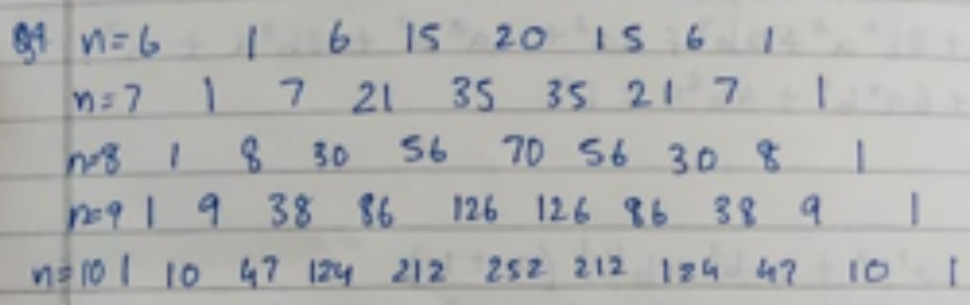 n=6 1 6 15 20 15 6 1
n=7 1 7 21 35 35 21 7 1
n=8 1 8 30 56 70 56 30 8 1
n=9 1 9 38 86 126 126 86 38 9 1
n=10 1 10 47 124 212 252 212 124 47 10 1